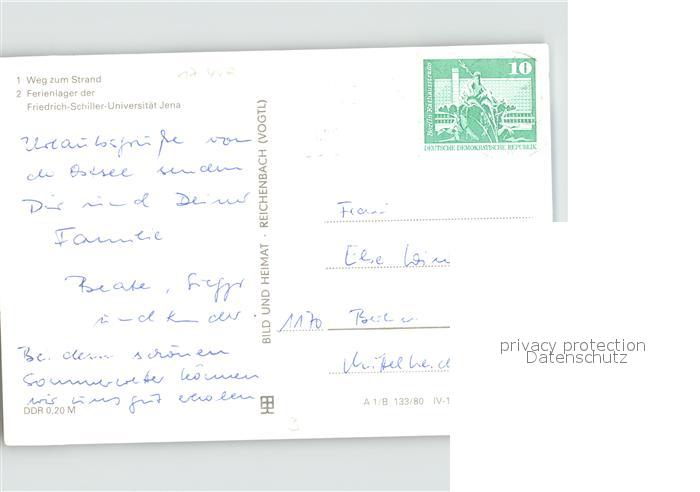 1 Weg zum Strand
2 Ferienlager der
Friedrich-Schiller-Universität Jena
Urlaubsgrüße von
der Ostsee senden
Dir und Deiner
Familie
Beate,
und Kinder.
Bei dem schönen
Sommerwetter können
wir uns gut erholen
DDR 0,20 M
BILD UND HEIMAT · REICHENBACH (VOGTL)
Berlin, Rathausstraße
10
DEUTSCHE DEMOKRATISCHE REPUBLIK
Frau
Else
1170 Berlin
A 1/B 133/80 IV-1
privacy protection
Datenschutz